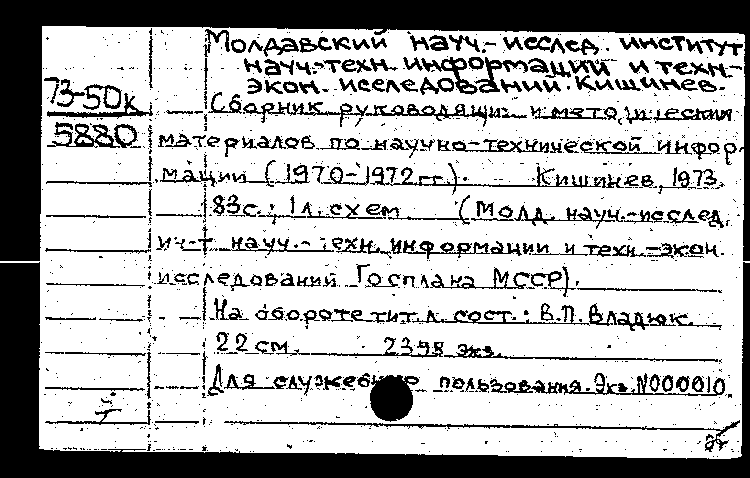 Молдавский науч.-исслед. институт
науч.-техн. информации и техн.-
экон. исследований. Кишинев.
73-50к
5880
Сборник руководящих и методических
материалов по научно-технической инфор-
мации (1970-1972 гг.). Кишинев, 1973.
83с.; 1 л. схем. (Молд. науч.-исслед.
ин-т науч.-техн. информации и техн.-экон.
исследований Госплана МССР).
На обороте тит. л. сост.: В.П. Владюк.
22 см. 239в экз.
Для служебного пользования. Экз. N000010.